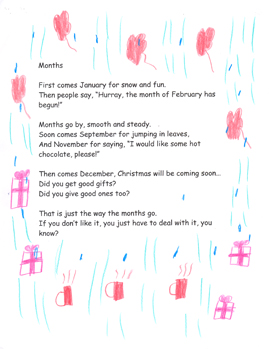 Months
First comes January for snow and fun.
Then people say, "Hurray, the month of February has
begun!"
Months go by, smooth and steady.
Soon comes September for jumping in leaves,
And November for saying, "I would like some hot
chocolate, please!"
Then comes December, Christmas will be coming soon...
Did you get good gifts?
Did you give good ones too?
That is just the way the months go.
If you don't like it, you just have to deal with it, you
know?